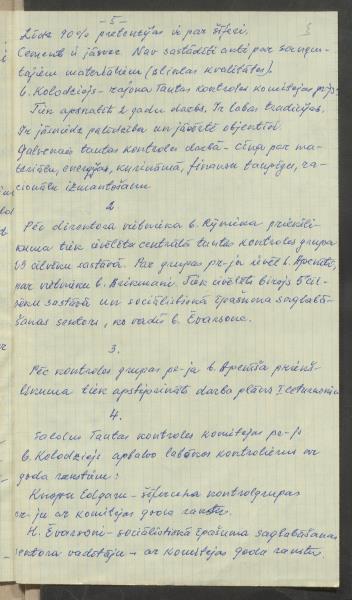 - 5 -
Līdz 90% pretenzijas ir par šīferi.
Cements ir jāsver. Nav sastādīti akti par saņem-
tajiem materiāliem (sliktas kvalitātes).
b. Kolodzjejs - rajona Tautas kontroles komitejas
Tiek apskatīts 2 gadu darbs. Ir labas tradīcijas.
Ir jāmeidz palīdzība un jāvērtē objektīvi.
Galvenais tautas kontroles darbā - cīņa par ma-
teriālu, enerģijas, kurināmā, finansu taupīgu, ra-
cionālu izmantošanu
2.
Pēc direktora vietnieka b. priekšli-
kuma tiek ievēlēta centrālā tautas kontroles grupa
cilvēku sastāvā. Par grupas pr-ju ievēl b.
par vietnieku b. Brikmani. Tiek ievēlēts birojs 5 cil-
vēku sastāvā un sociālistiskā īpašuma saglabā-
šanas sektors, ko vadīs b. Evarsone.
3.
Pēc kontroles grupas pr-ja b. priekš-
likuma tiek apstiprināts darba plāns I ceturksnim
4.
Saldus Tautas kontroles komitejas pr-js
b. Kolodzjejs apbalvo labākos kontrolierus ar
goda rakstiem:
Knopu Edgaru - šīfercha kontrolgrupas
pr-ju ar komitejas goda rakstu.
H. Evarsoni - sociālistiskā īpašuma saglabāšanas
sektora vadītāju - ar komitejas goda rakstu.